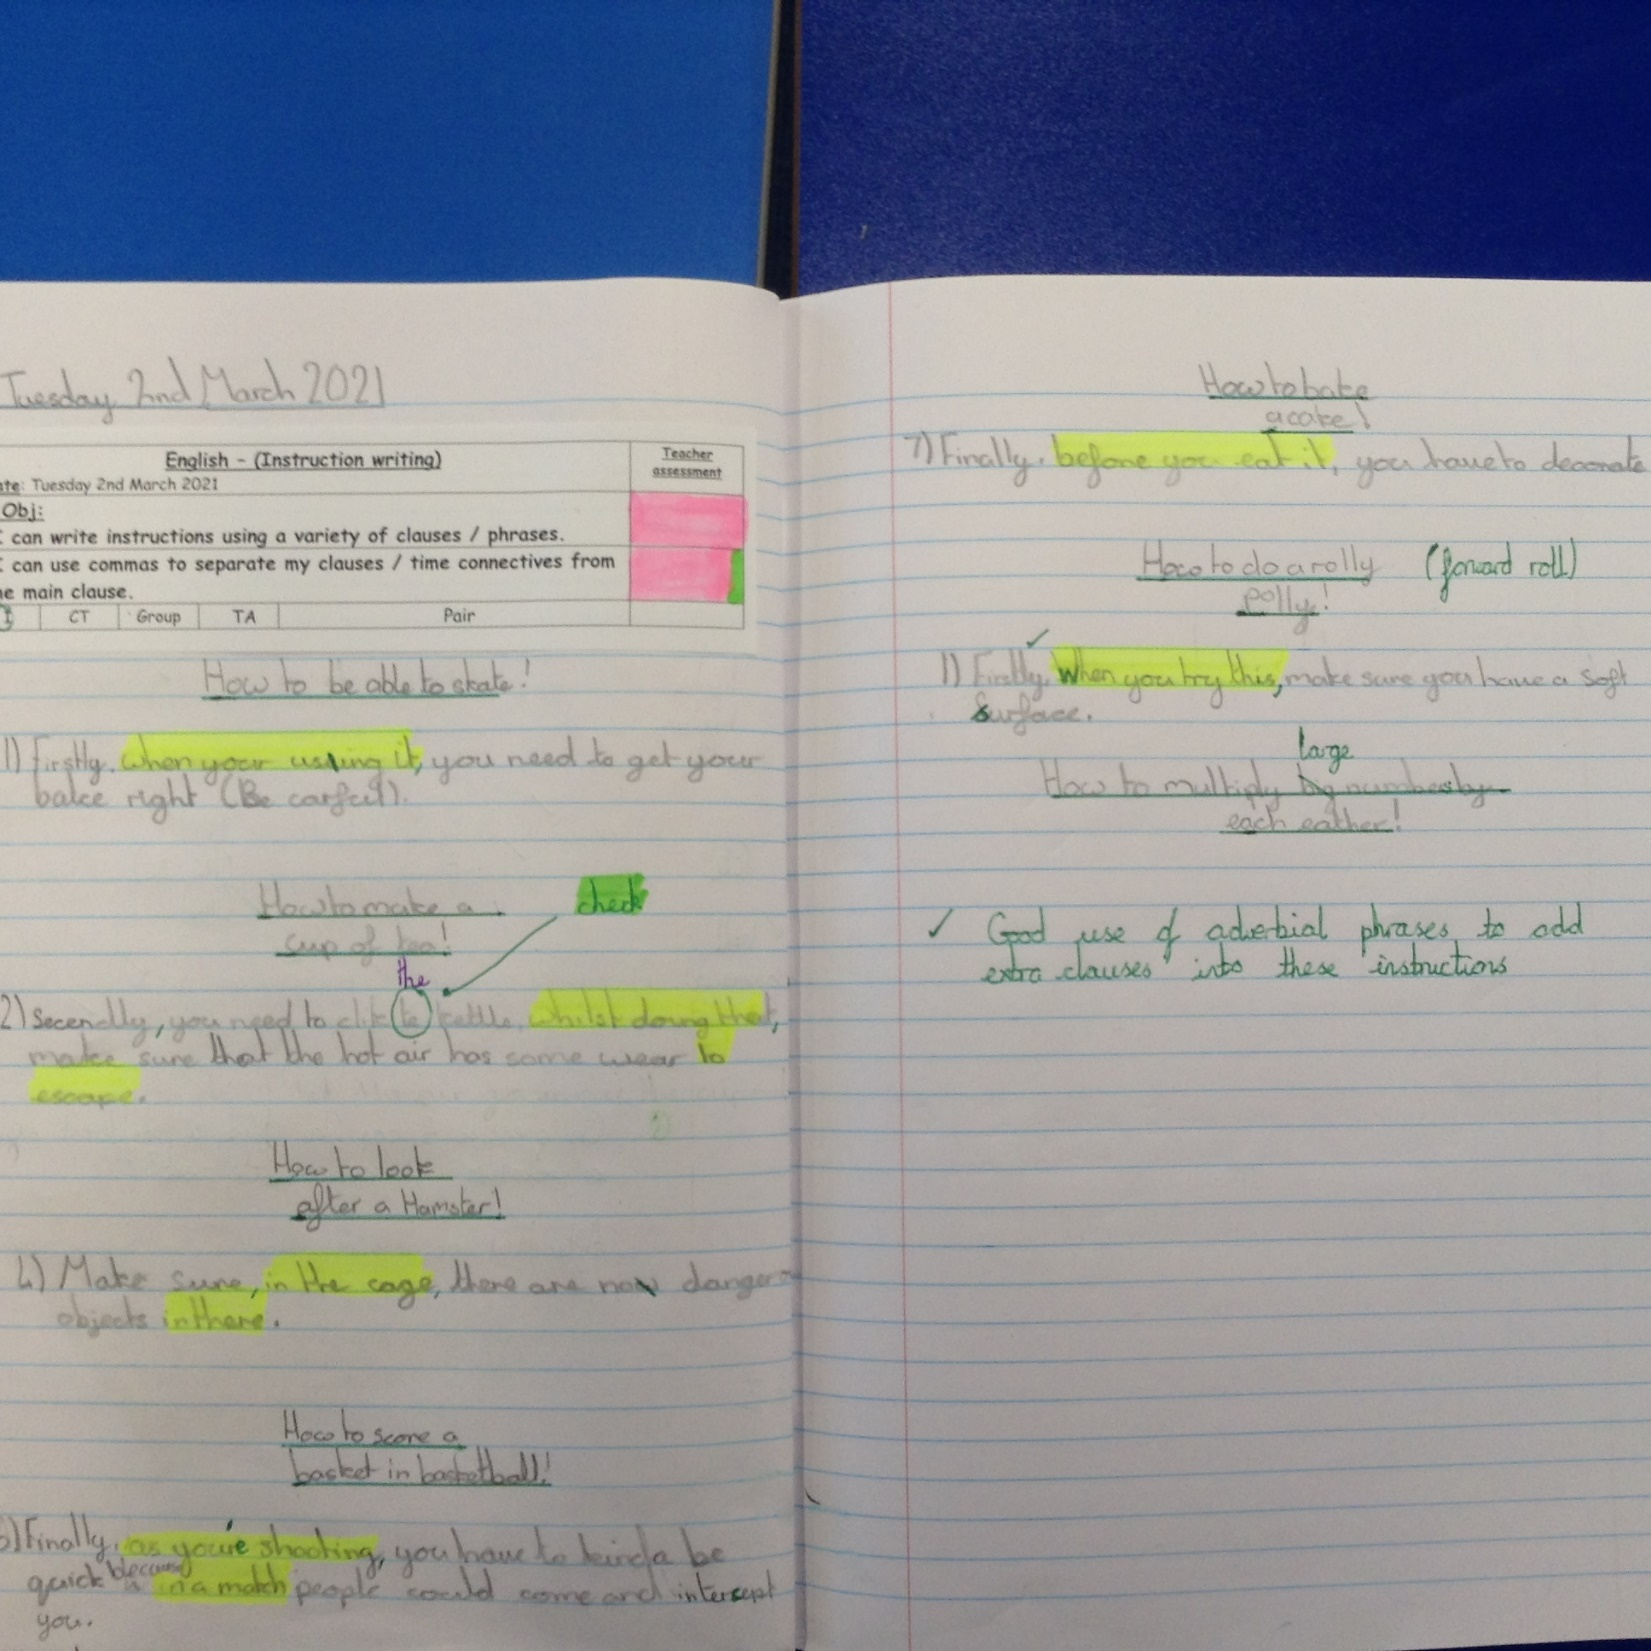 Tuesday 2nd March 2021
English - (Instruction writing)
Teacher assessment
ate: Tuesday 2nd March 2021
Obj:
I can write instructions using a variety of clauses / phrases.
I can use commas to separate my clauses / time connectives from
he main clause.
CT Group TA Pair
How to be able to skate!
1) Firstly, when your using it, you need to get your
balce right (Be carfull).
How to make a
cup of tea!
check
the
2) Secendly, you need to clik te kettle, whilst doing that,
make sure that the hot air has some wear to
escape.
How to look
after a Hamster!
4) Make sure, in the cage, there are now danger
objects in there.
How to score a
basket in basketball!
Finally, as you're shooting, you have to kinda be
quick because in a match people could come and intercept
you.
How to bake
a cake!
7) Finally, before you eat it, you have to decorate
How to do a rolly (forward roll)
polly!
1) Firstly, When you try this, make sure you have a soft
surface.
large
How to multiply big numbers by
each eather!
✓ Good use of adverbial phrases to add
extra clauses into these instructions